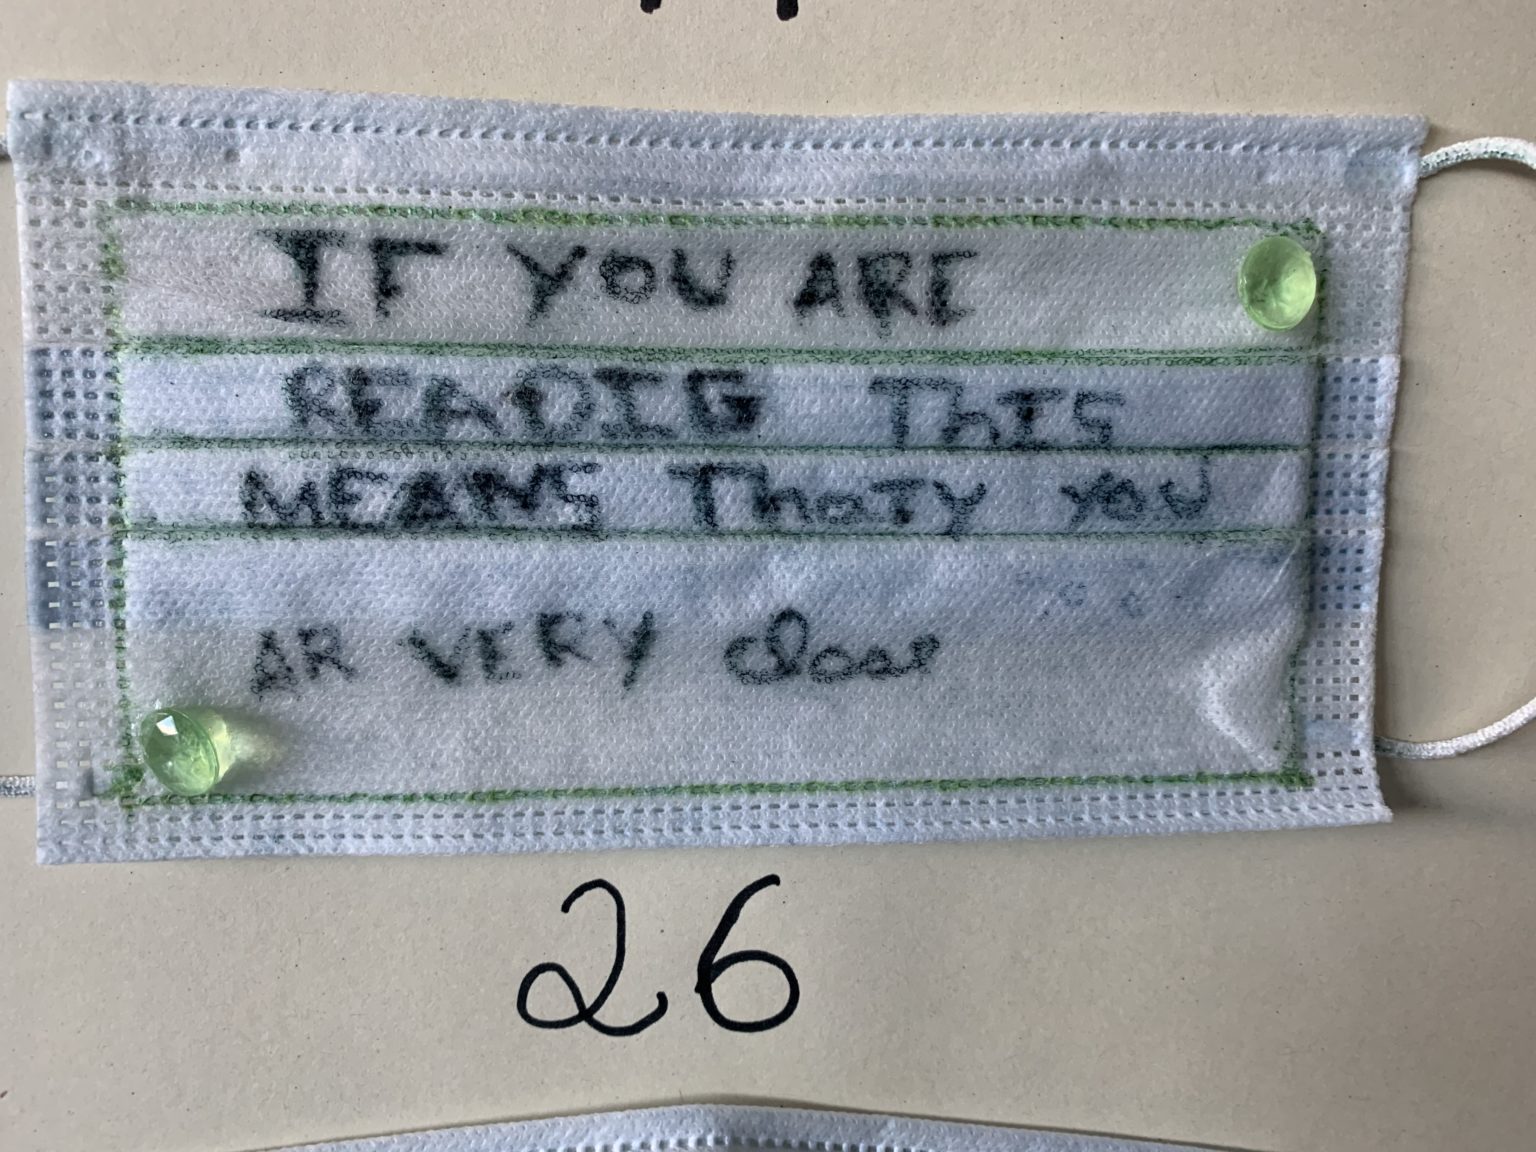 IF YOU ARE
READIG ThIS
MEANS ThaTY YOU
AR VERY close
26